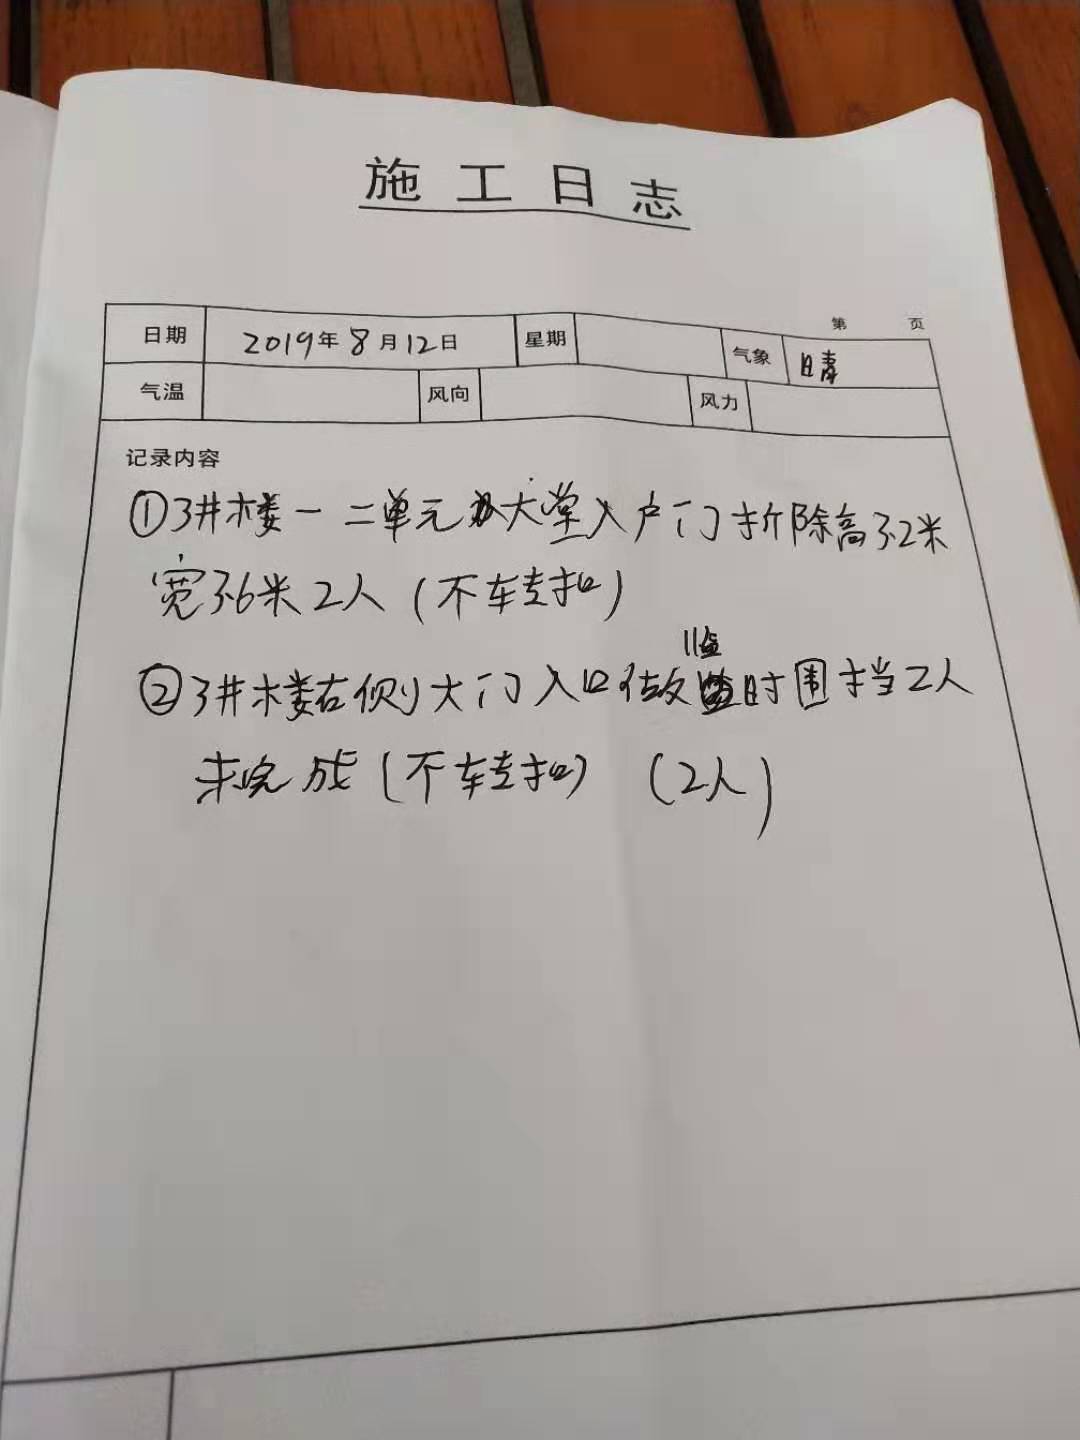 施工日志
第 页
日期 2019年8月12日 星期 气象 晴
气温 风向 风力
记录内容
①3井楼一二单元大堂入户门折除高3.2米
宽3.6米2人(不车专扣)
监
②3井楼右侧大门入口做时围挡2人
未完成(不车专扣) (2人)